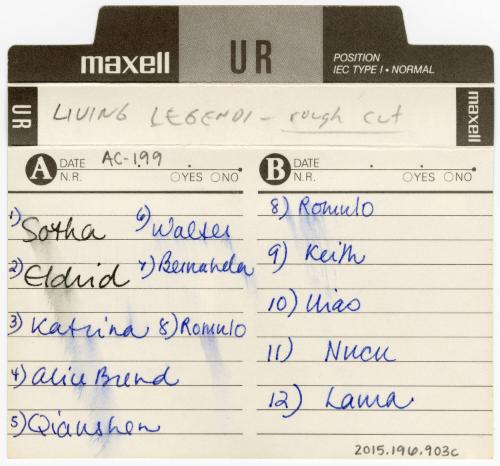 maxell UR POSITION
IEC TYPE I • NORMAL
UR LIVING LEGENDS - rough cut maxell
A DATE AC-199
N.R. YES NO
1) Sotha
2) Eldrid
3) Katrina
4) Alice Brend
5) Qianshen
6) Walter
7) Bernarda
8) Romulo
B DATE
N.R. YES NO
8) Romulo
9) Keith
10) Xiao
11) Nucu
12) Lama
2015.196.903c